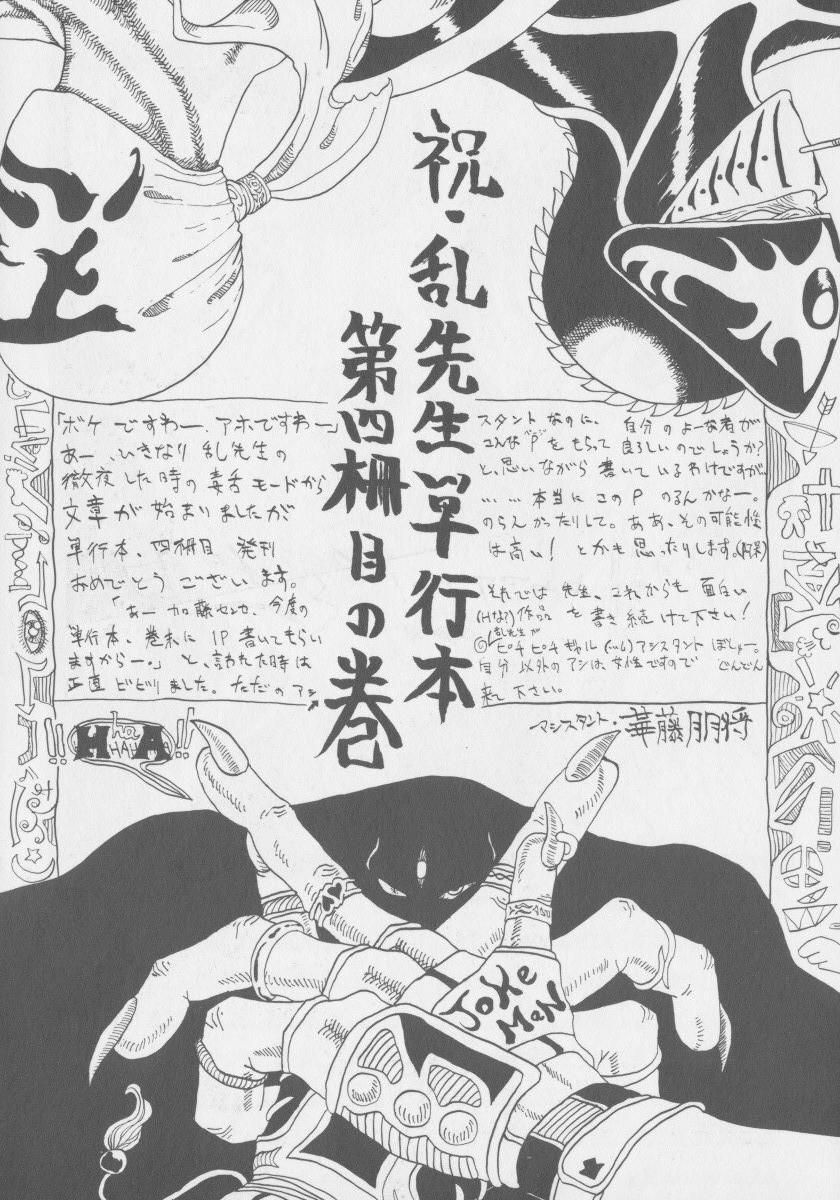 祝・乱先生単行本
第四柵目の巻
「ボケですわー、アホですわー」
あー、いきなり乱先生の
徹夜した時の毒舌モードから
文章が始まりましたが
単行本、四冊目 発刊
おめでとうございます。
「あー加藤センセ、今度の
単行本、巻末に1P書いてもらい
ますからー。」と、言われた時は
正直ビビりました。ただのアシ
スタントなのに、自分のよーな者が
こんな"P"をもらって良ろしいのでしょうか?
と、思いながら書いているわけですが、
……本当にこのP のるんかなー。
のらんかったりして。ああ、その可能性
は高い! とかも思ったりします。
それでは先生、これからも面白い
(Hな?)作品を書き続けて下さい!
乱先生が
◎ピチピチギャル アシスタント ぼしゅー。
自分以外のアシは、女性ですので じゃんじゃん
来て下さい。
マシスタント・華藤朋将
!! Ha HAHAHA !!
JoKe
MaN